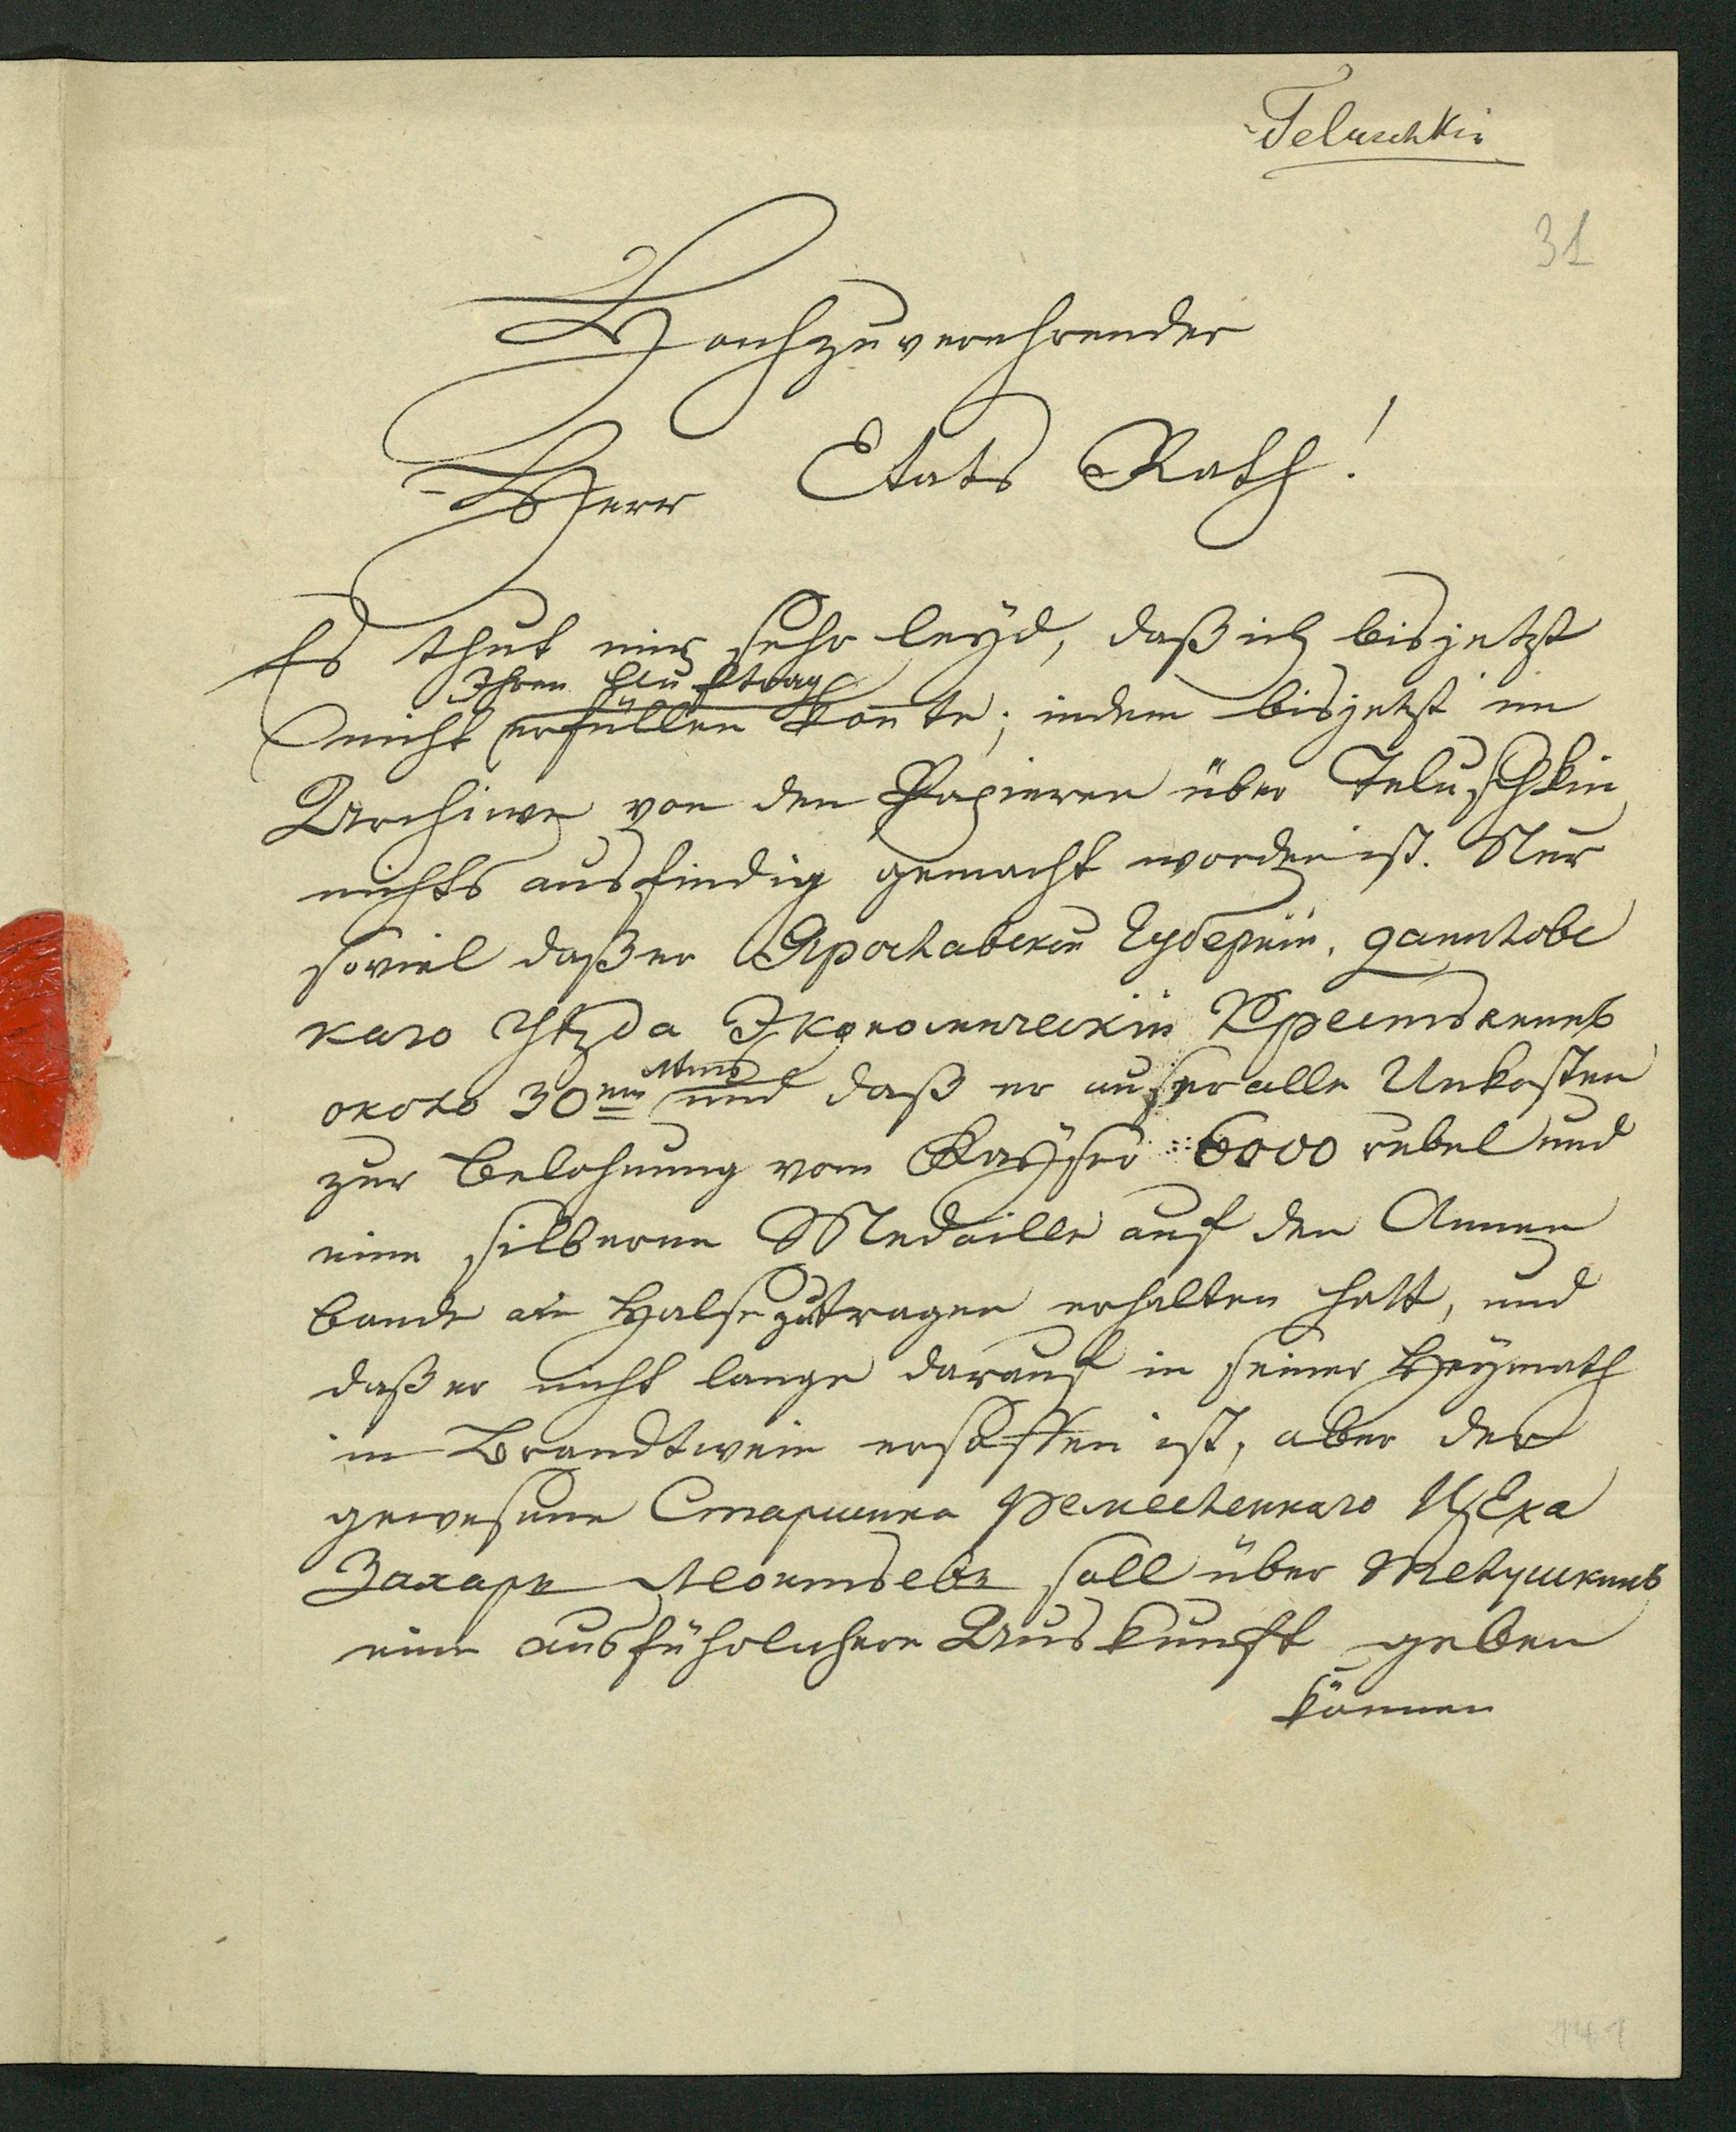 Teluschkin
31
Hochzuverehrender
Herr Etats Rath!
Es thut mir sehr leyd, daß ich bis jetzt
Ihren Auftrag
nicht erfüllen konte; indem bis jetzt im
Archiwe von den Papieren über Teluschkin
nichts ausfindig gemacht worden ist. Nur
soviel daß er Ярославской Губерніи, даниловс
каго Уѣзда Экономическій Крестьянинъ
лѣтъ
около 30ти und daß er ausser alle Unkosten
zur Belohnung vom Kayser 6000 rubel und
eine silberne Medaille auf den Annen
bande am Halse zu tragen erhalten hatt, und
daß er nicht lange darauf in seiner Heymath
im Brandtwein ersoffen ist, aber der
gewesene Старшина Ремесленнаго Цеха
Захаръ Леонтьевъ soll über Телушкинъ
eine ausführlichere Auskunft geben
können
141